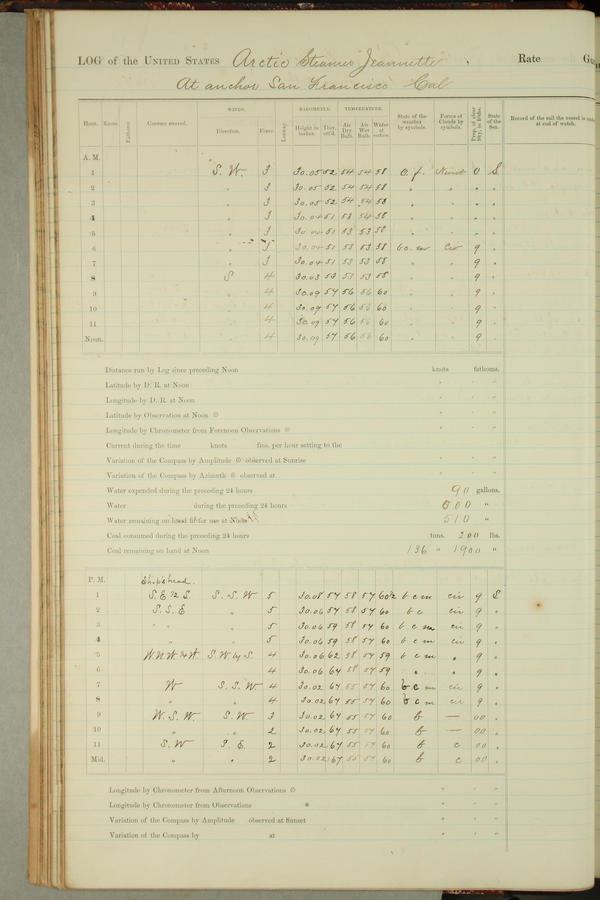 LOG of the UNITED STATES Arctic Steamer Jeannette Rate
At anchor San Francisco Cal
WINDS. BAROMETER. TEMPERATURE.
Hour. Knots. Fathoms. Courses steered. Direction. Force. Leeway. Height in inches. Ther. att'd. Air Dry Bulb. Air Wet Bulb. Water at surface. State of the weather by symbols. Forms of Clouds by symbols. Prop. of clear Sky, in 10ths. State of the Sea. Record of the sail the vessel is under at end of watch.
A. M.
1 S. W. 3 30.05 52 54 54 58 o. f. 0 S
2 " 3 30.05 52 54 54 58 " " " "
3 " 3 30.05 52 54 54 58 " " " "
4 " 3 30.04 51 53 54 58 " " " "
5 " 3 30.04 51 53 53 58 " " " "
6 " 3 30.04 51 53 53 58 b c. m Cir 9 "
7 " 3 30.04 51 53 53 58 " " 9 "
8 S 4 30.03 53 53 53 58 " " 9 "
9 " 4 30.09 54 56 56 60 " " 9 "
10 " 4 30.09 54 56 56 60 " " 9 "
11 " 4 30.09 54 56 56 60 " " 9 "
Noon. " 4 30.09 54 56 56 60 " " 9 "
Distance run by Log since preceding Noon knots fathoms.
Latitude by D. R. at Noon ° ' "
Longitude by D. R. at Noon ° ' "
Latitude by Observation at Noon ☉ ° ' "
Longitude by Chronometer from Forenoon Observations ☉ ° ' "
Current during the time knots fms. per hour setting to the
Variation of the Compass by Amplitude ☉ observed at Sunrise ° ' "
Variation of the Compass by Azimuth ☉ observed at ° ' "
Water expended during the preceding 24 hours 90 gallons.
Water during the preceding 24 hours 600 "
Water remaining on hand fit for use at Noon 510 "
Coal consumed during the preceding 24 hours tons. 200 lbs.
Coal remaining on hand at Noon 136 " 1900 "
P. M. Ship's head.
1 S. E ½ S. S. S. W 5 30.08 57 58 57 60½ b c m cir 9 S
2 S. S. E " 5 30.06 57 58 57 60 b c cir 9 "
3 " " " 5 30.06 59 58 57 60 b c m cir 9 "
4 " " 5 30.06 59 58 57 60 b c m cir 9 "
5 S. W. by S. 4 30.06 62 58 57 59 b c m " 9 "
6 4 30.06 64 58 57 59 " " 9 "
7 W S. S. W. 4 30.02 67 55 57 60 b c m cir 9 "
8 " " 4 30.02 67 55 57 60 b c m cir 9 "
9 W. S. W. S. W. 3 30.02 67 55 57 60 b — 00 "
10 " " 2 30.02 67 55 57 60 b — 00 "
11 S. W 2 30.02 67 55 57 60 b c 00 "
Mid. " " 2 30.02 67 55 57 60 b c 00 "
Longitude by Chronometer from Afternoon Observations ☉ ° ' "
Longitude by Chronometer from Observations * ° ' "
Variation of the Compass by Amplitude observed at Sunset ° ' "
Variation of the Compass by at ° ' "